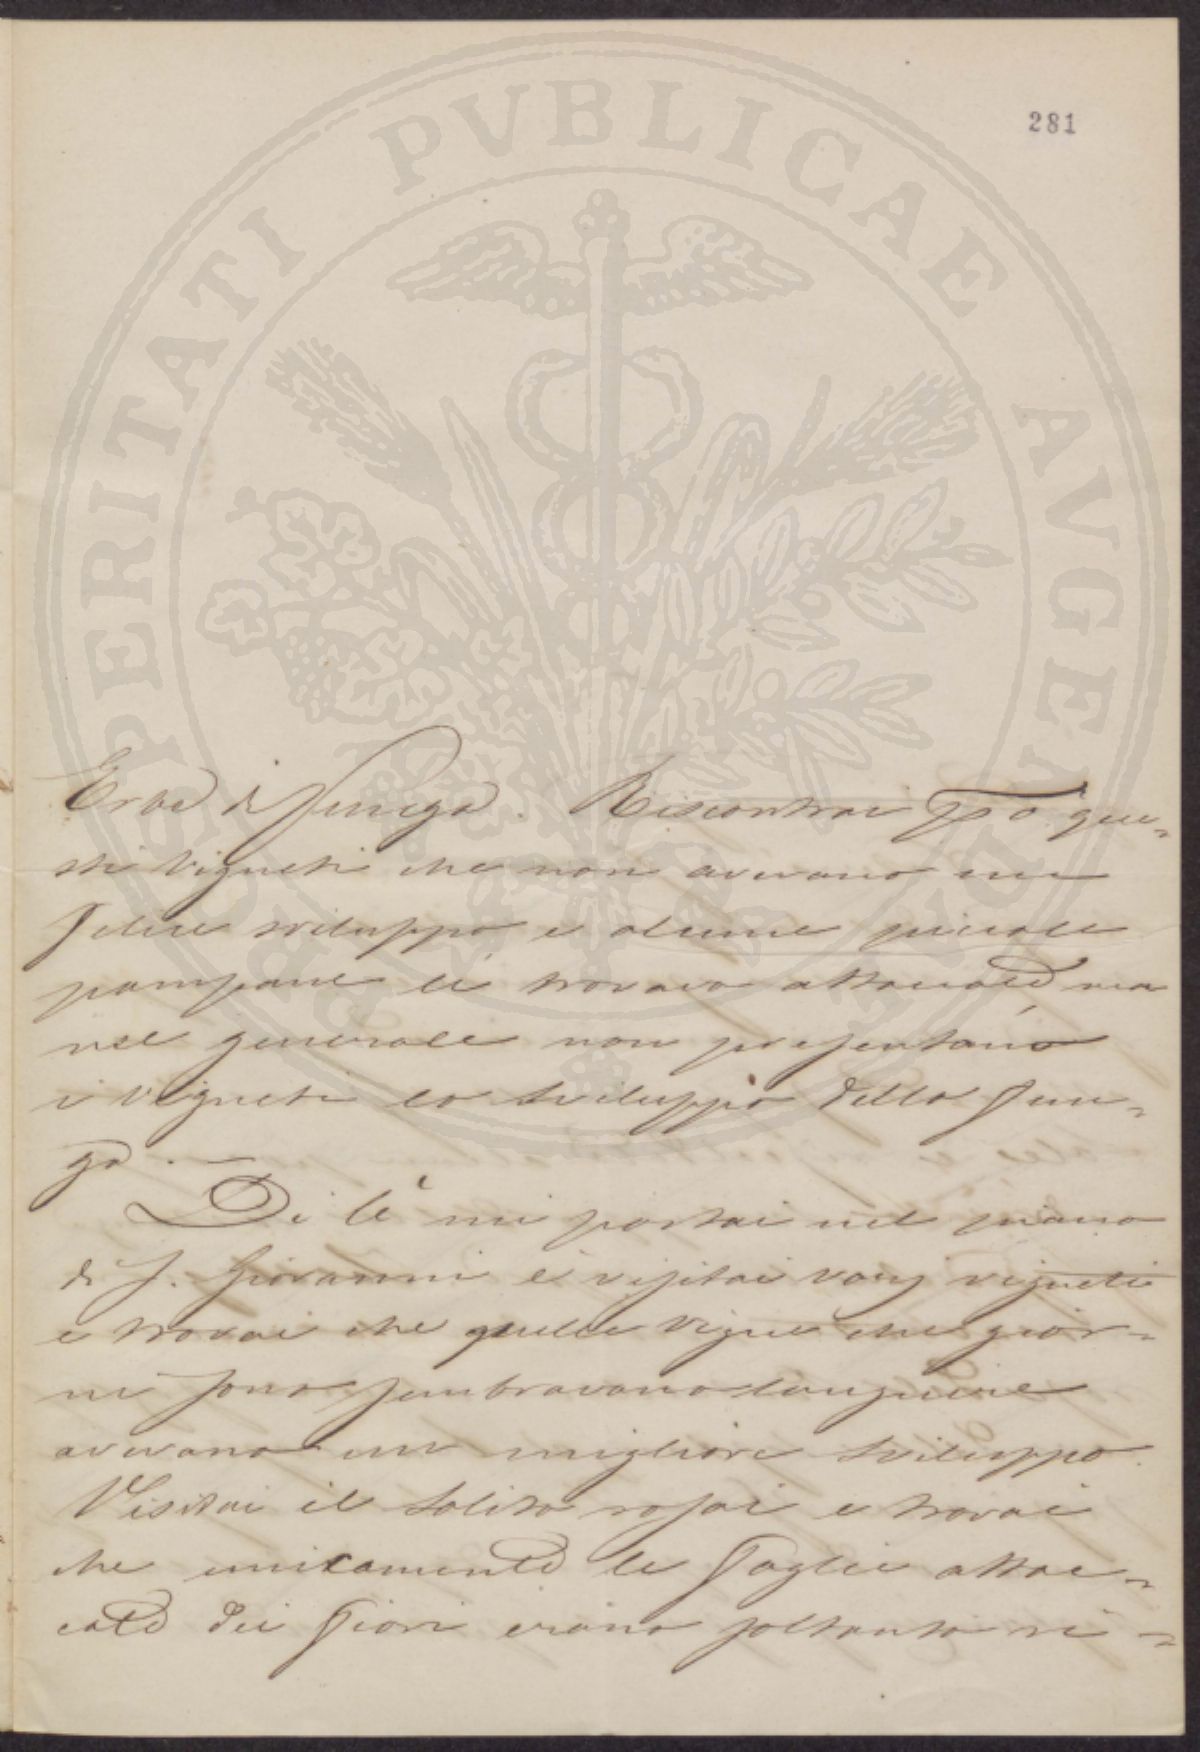 281
PROSPERITATI PVBLICAE AVGENDAE
Erba di Junega. Riscontrai però que=
sti vigneti che non avevano un
felice sviluppo e alcune piccole
pampane li trovavo attaccate ma
nel generale non presentano
i vigneti lo sviluppo dello fun=
go. —
Di là mi portai nel piano
di S. Giovanni e visitai varj vigneti
e trovai che quelle vigne che gior=
ni sono sembravano languire
avevano un migliore sviluppo.
Visitai il solito rosai e trovai
che unicamente le foglie attac=
cate dei fiori erano soltanto ri=